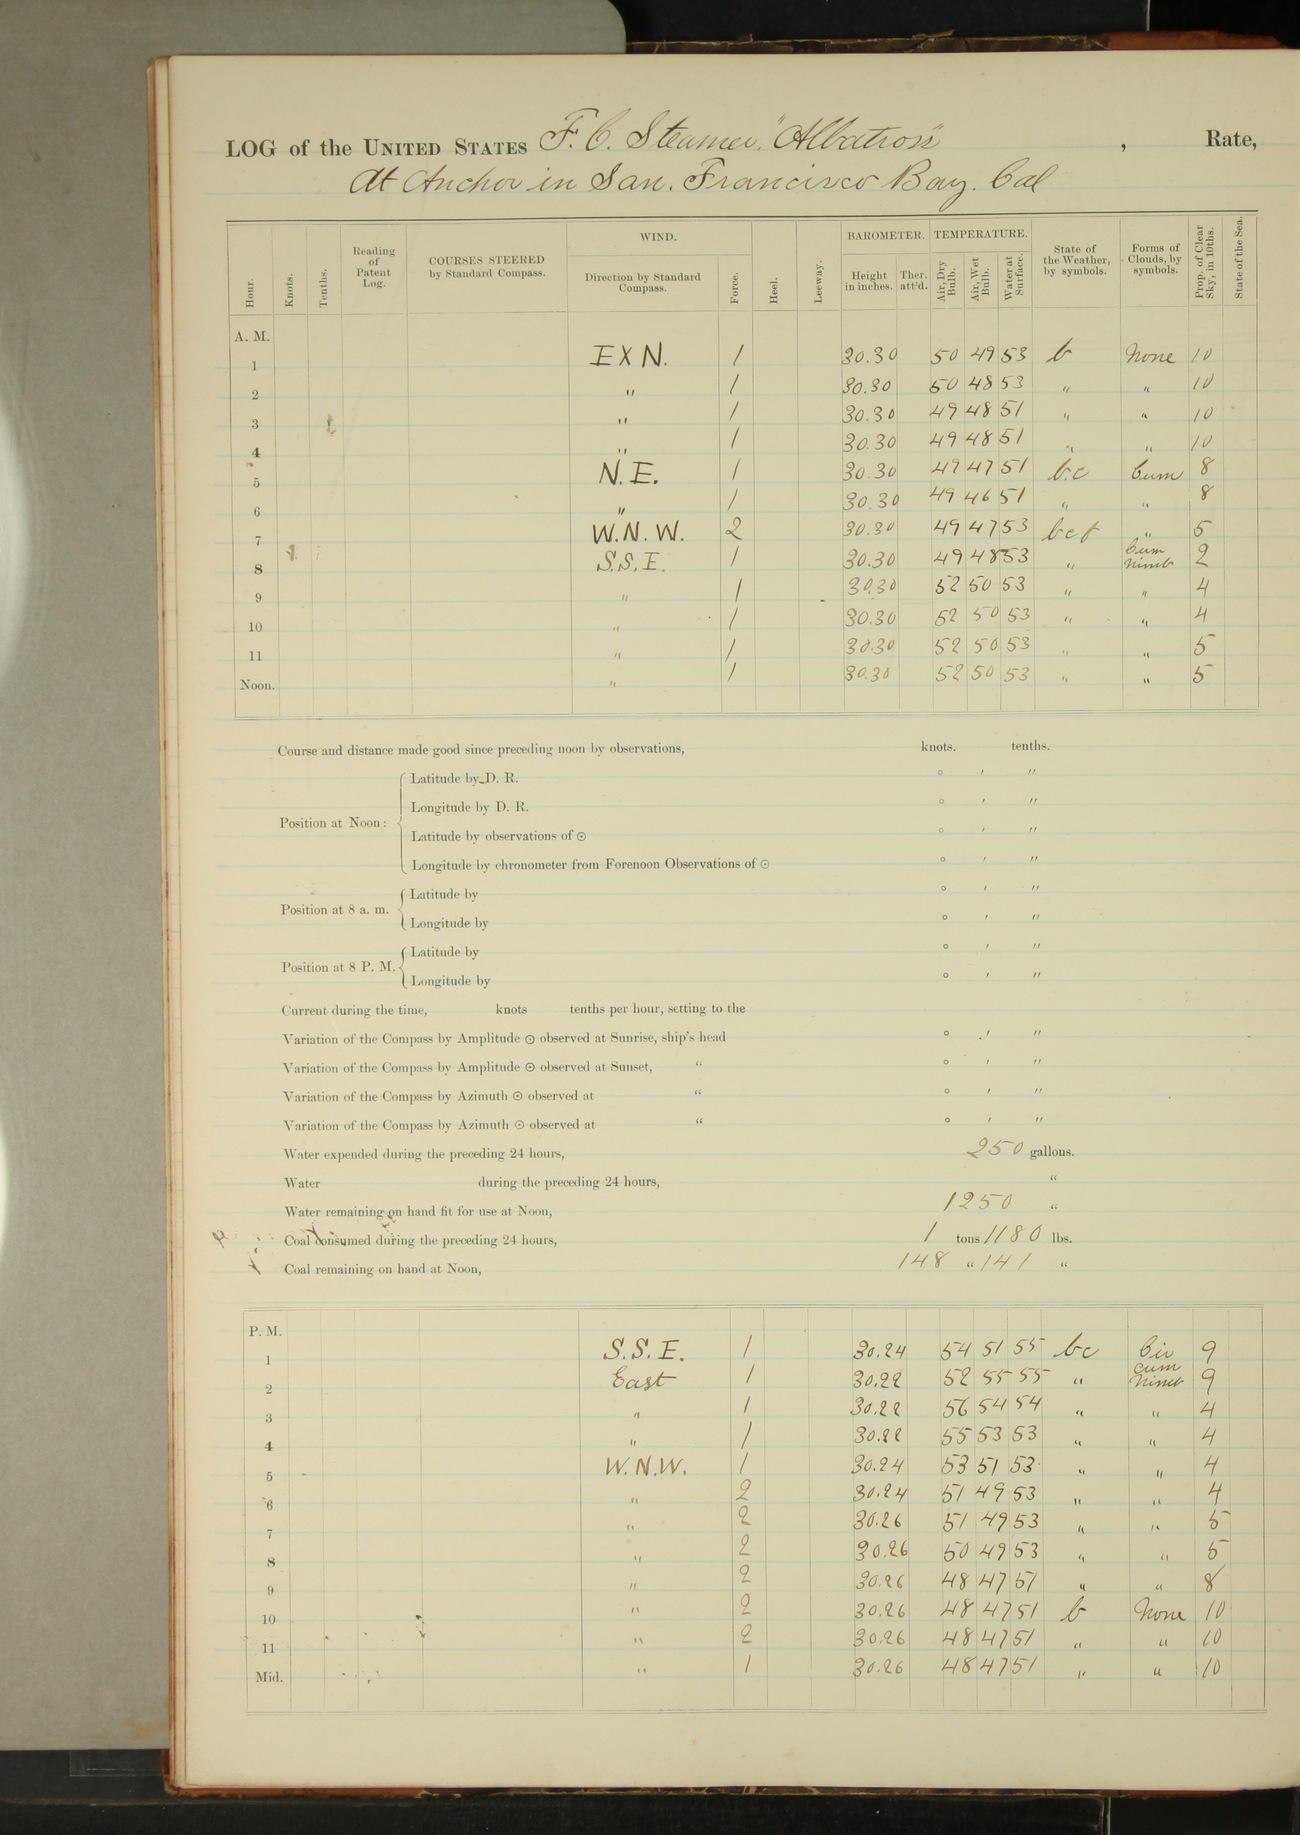 LOG of the UNITED STATES F. C. Steamer "Albatross" , Rate,
At Anchor in San. Francisco Bay. Cal
Hour. Knots. Tenths. Reading of Patent Log. COURSES STEERED by Standard Compass. WIND. Direction by Standard Compass. Force. Heel. Leeway. BAROMETER. Height in inches. Ther. att'd. TEMPERATURE. Air, Dry Bulb. Air, Wet Bulb. Water at Surface. State of the Weather, by symbols. Forms of Clouds, by symbols. Prop. of Clear Sky, in 10ths. State of the Sea.
A. M.
1 E X N. 1 30.30 50 49 53 b None 10
2 " 1 30.30 50 48 53 " " 10
3 " 1 30.30 49 48 51 " " 10
4 " 1 30.30 49 48 51 " " 10
5 N. E. 1 30.30 49 47 51 b.c Cum 8
6 " 1 30.30 49 46 51 " " 8
7 W. N. W. 2 30.30 49 47 53 bcf " 5
8 S. S. E. 1 30.30 49 48 53 " Cum Nimb 2
9 " 1 30.30 52 50 53 " " 4
10 " 1 30.30 52 50 53 " " 4
11 " 1 30.30 52 50 53 " " 5
Noon. " 1 30.30 52 50 53 " " 5
Course and distance made good since preceding noon by observations, knots. tenths.
Position at Noon: Latitude by D. R. ° ' "
Longitude by D. R. ° ' "
Latitude by observations of ☉ ° ' "
Longitude by chronometer from Forenoon Observations of ☉ ° ' "
Position at 8 a. m. Latitude by ° ' "
Longitude by ° ' "
Position at 8 P. M. Latitude by ° ' "
Longitude by ° ' "
Current during the time, knots tenths per hour, setting to the
Variation of the Compass by Amplitude ☉ observed at Sunrise, ship's head ° ' "
Variation of the Compass by Amplitude ☉ observed at Sunset, " ° ' "
Variation of the Compass by Azimuth ☉ observed at " ° ' "
Variation of the Compass by Azimuth ☉ observed at " ° ' "
Water expended during the preceding 24 hours, 250 gallons.
Water during the preceding 24 hours, "
Water remaining on hand fit for use at Noon, 1250 "
Coal consumed during the preceding 24 hours, 1 tons 1180 lbs.
Coal remaining on hand at Noon, 148 " 141 "
P. M.
1 S. S. E. 1 30.24 54 51 55 bc Cir 9
2 East 1 30.22 52 55 55 " Cum Nimb 9
3 " 1 30.22 56 54 54 " " 4
4 " 1 30.22 55 53 53 " " 4
5 W. N. W. 1 30.24 53 51 53 " " 4
6 " 2 30.24 51 49 53 " " 4
7 " 2 30.26 51 49 53 " " 5
8 " 2 30.26 50 49 53 " " 5
9 " 2 30.26 48 47 51 " " 8
10 " 2 30.26 48 47 51 b None 10
11 " 2 30.26 48 47 51 " " 10
Mid. " 1 30.26 48 47 51 " " 10